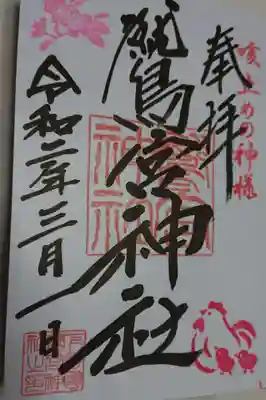 咳止めの神様
奉拝
鷲宮神社
令和二年三月一日